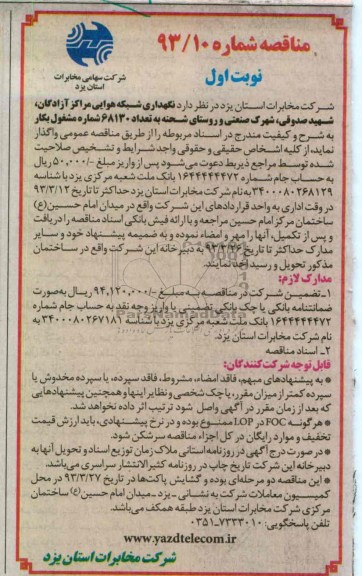 مناقصه شماره ۹۳/۱۰
نوبت اول
شرکت سهامی مخابرات
استان یزد
شرکت مخابرات استان یزد در نظر دارد نگهداری شبکه هوایی مراکز آزادگان،
شهید صدوقی، شهرک صنعتی و روستای شحنه به تعداد ۶۸۱۳۰ شماره مشغول بکار
به شرح و کیفیت مندرج در اسناد مربوطه را از طریق مناقصه عمومی واگذار
نماید، از کلیه اشخاص حقیقی و حقوقی واجد شرایط و تشخیص صلاحیت
شده توسط مراجع ذیربط دعوت می‌شود پس از واریز مبلغ -/۵۰,۰۰۰ ریال
به حساب جام شماره ۱۶۴۴۴۴۴۴۷۲ بانک ملت شعبه مرکزی یزد با شناسه
۳۴۰۰۰۸۰۲۶۸۱۲۹ به نام شرکت مخابرات استان یزد حداکثر تا تاریخ ۹۳/۳/۱۲
در وقت اداری به واحد قراردادهای این شرکت واقع در میدان امام حسین(ع)
ساختمان مرکز امام حسین مراجعه و با ارائه فیش بانکی اسناد مناقصه را دریافت
و پس از تکمیل، آنها را مهر و امضاء نموده و به ضمیمه پیشنهاد خود و سایر
مدارک حداکثر تا تاریخ ۹۳/۳/۲۶ به دبیرخانه این شرکت واقع در ساختمان
مذکور تحویل و رسید اخذ نمایند.
مدارک لازم:
۱- تضمین شرکت در مناقصه به مبلغ -/۹۴,۱۲۰,۰۰۰ ریال به‌صورت
ضمانتنامه بانکی یا چک بانکی تضمینی یا واریز وجه نقد به حساب جام شماره
۱۶۴۴۴۴۴۴۷۲ بانک ملت شعبه مرکزی یزد با شناسه ۳۴۰۰۰۸۰۲۶۷۱۸۱ به
نام شرکت مخابرات استان یزد.
۲- اسناد مناقصه
قابل توجه شرکت‌کنندگان:
* به پیشنهادهای مبهم، فاقد امضاء، مشروط، فاقد سپرده، یا سپرده مخدوش یا
سپرده کمتر از میزان مقرر، یا چک شخصی و نظایر اینها و همچنین پیشنهادهایی
که بعد از زمان مقرر در آگهی واصل شود ترتیب اثر داده نخواهد شد.
* هرگونه FOC در LOP ممنوع بوده و در نرخ پیشنهادی، باید ارزش قیمت
تخفیف و موارد رایگان در کل اجزاء مناقصه سرشکن شود.
* در صورت درج آگهی در روزنامه استانی ملاک زمان توزیع اسناد و تحویل آنها به
دبیرخانه این شرکت تاریخ چاپ در روزنامه کثیرالانتشار سراسری می‌باشد.
* این مناقصه دو مرحله‌ای بوده و گشایش پاکت‌ها در تاریخ ۹۳/۳/۲۷ در محل
کمیسیون معاملات شرکت به نشانی - یزد - میدان امام حسین(ع) ساختمان
مرکزی شرکت مخابرات استان یزد طبقه همکف می‌باشد.
تلفن پاسخگویی: ۷۲۳۳۰۱۰-۰۳۵۱
www.yazdtelecom.ir
شرکت مخابرات استان یزد